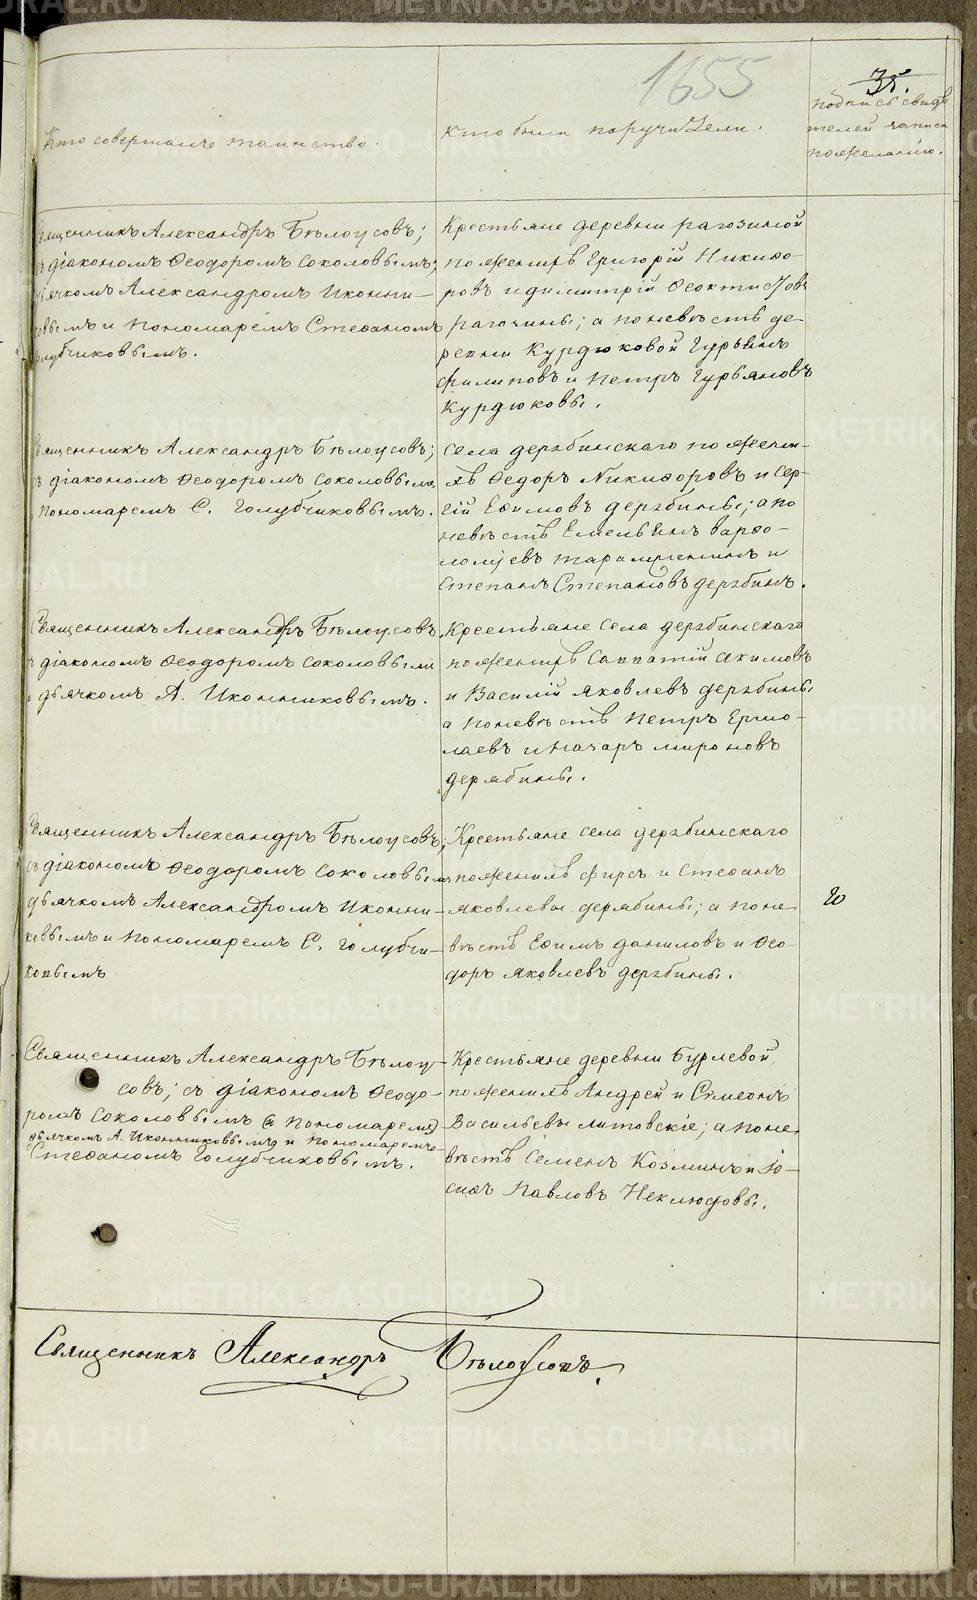 1655
35.
Кто совершалъ таинство.
Кто были поручители.
подпись свидѣ
телей записи
по желанію.
Священникъ Александръ Бѣлоусовъ;
съ діакономъ Ѳеодоромъ Соколовымъ;
дьячкомъ Александромъ Иконни-
ковымъ и пономаремъ Стефаномъ
Голубчиковымъ.
Крестьяне деревни Рагозиной
по женихѣ Григорій Никифо-
ровъ и Димитрій Ѳеоктистовъ
Рагозины; а по невѣстѣ де-
ревни Курдюковой Гурьянъ
Филиповъ и Петръ Гурьяновъ
Курдюковы.
Священникъ Александръ Бѣлоусовъ;
съ діакономъ Ѳеодоромъ Соколовымъ,
пономаремъ С. Голубчиковымъ.
Села Дерябинскаго по жени-
хѣ Ѳедоръ Никифоровъ и Сер-
гій Ефимовъ Дерябины; а по
невѣстѣ Емельянъ Варфо-
ломѣевъ и
Степанъ Степановъ Дерябинъ.
Священникъ Александръ Бѣлоусовъ
съ діакономъ Ѳеодоромъ Соколовымъ
и дьячкомъ А. Иконниковымъ.
Крестьяне села Дерябинскаго
по женихѣ Савватій Акимовъ
и Василій Яковлевъ Дерябины
а по невѣстѣ Петръ Ермо-
лаевъ и Мироновъ
Дерябины.
Священникъ Александръ Бѣлоусовъ;
съ діакономъ Ѳеодоромъ Соколовымъ
дьячкомъ Александромъ Иконни-
ковымъ и пономаремъ С. Голубчи-
ковымъ
Крестьяне села Дерябинскаго
по женихѣ Фирсъ и Стефанъ
Яковлевы Дерябины; а по не
вѣстѣ Ефимъ Даниловъ и Ѳео-
доръ Яковлевъ Дерябины.
Священникъ Александръ Бѣлоу-
совъ; съ діакономъ Ѳеодо-
ромъ Соколовымъ (и пономаремъ)
дьячкомъ А. Иконниковымъ и пономаремъ
Стефаномъ Голубчиковымъ.
Крестьяне деревни Бурлевой
по женихѣ Андрей и Симеонъ
Васильевы Литовскіе; а по не
вѣстѣ Семенъ Козминъ и Іо-
сифъ Павловъ Неклюдовы.
Священникъ Александръ Бѣлоусовъ.
METRIKI.GASO-URAL.RU